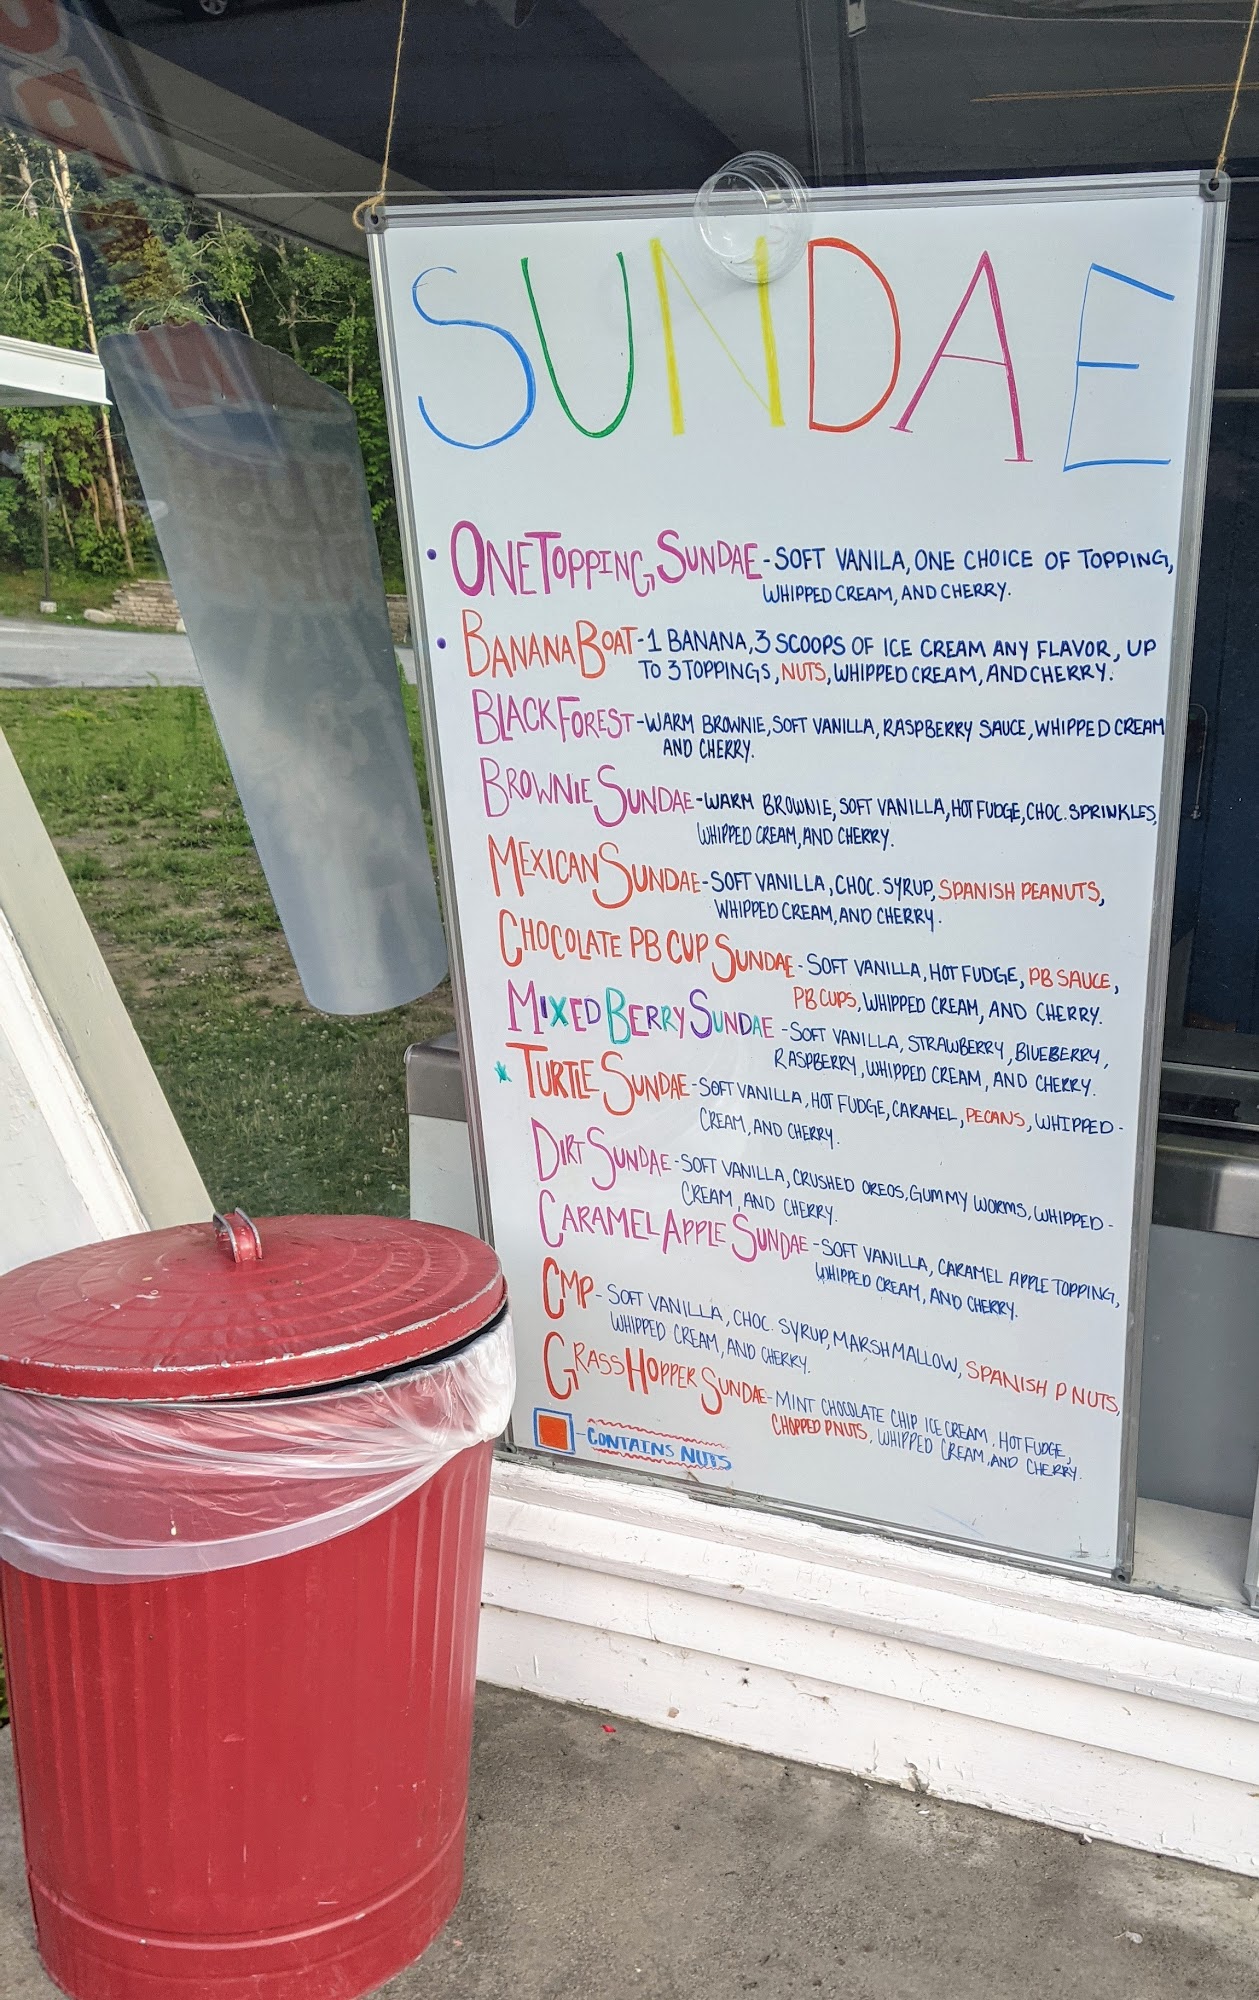 SUNDAE
• ONE TOPPING SUNDAE - SOFT VANILA, ONE CHOICE OF TOPPING,
WHIPPED CREAM, AND CHERRY.
• BANANA BOAT - 1 BANANA, 3 SCOOPS OF ICE CREAM ANY FLAVOR, UP
TO 3 TOPPINGS, NUTS, WHIPPED CREAM, AND CHERRY.
BLACK FOREST - WARM BROWNIE, SOFT VANILLA, RASPBERRY SAUCE, WHIPPED CREAM
AND CHERRY.
BROWNIE SUNDAE - WARM BROWNIE, SOFT VANILLA, HOT FUDGE, CHOC. SPRINKLES,
WHIPPED CREAM, AND CHERRY.
MEXICAN SUNDAE - SOFT VANILLA, CHOC. SYRUP, SPANISH PEANUTS,
WHIPPED CREAM, AND CHERRY.
CHOCOLATE PB CUP SUNDAE - SOFT VANILLA, HOT FUDGE, PB SAUCE,
PB CUPS, WHIPPED CREAM, AND CHERRY.
MIXED BERRY SUNDAE - SOFT VANILLA, STRAWBERRY, BLUEBERRY,
RASPBERRY, WHIPPED CREAM, AND CHERRY.
* TURTLE SUNDAE - SOFT VANILLA, HOT FUDGE, CARAMEL, PECANS, WHIPPED -
CREAM, AND CHERRY.
DIRT SUNDAE - SOFT VANILLA, CRUSHED OREOS, GUMMY WORMS, WHIPPED -
CREAM, AND CHERRY.
CARAMEL APPLE SUNDAE - SOFT VANILLA, CARAMEL APPLE TOPPING,
WHIPPED CREAM, AND CHERRY.
CMP - SOFT VANILLA, CHOC. SYRUP, MARSHMALLOW, SPANISH P NUTS,
WHIPPED CREAM, AND CHERRY.
GRASSHOPPER SUNDAE - MINT CHOCOLATE CHIP ICE CREAM, HOT FUDGE,
CHOPPED P NUTS, WHIPPED CREAM, AND CHERRY.
- CONTAINS NUTS